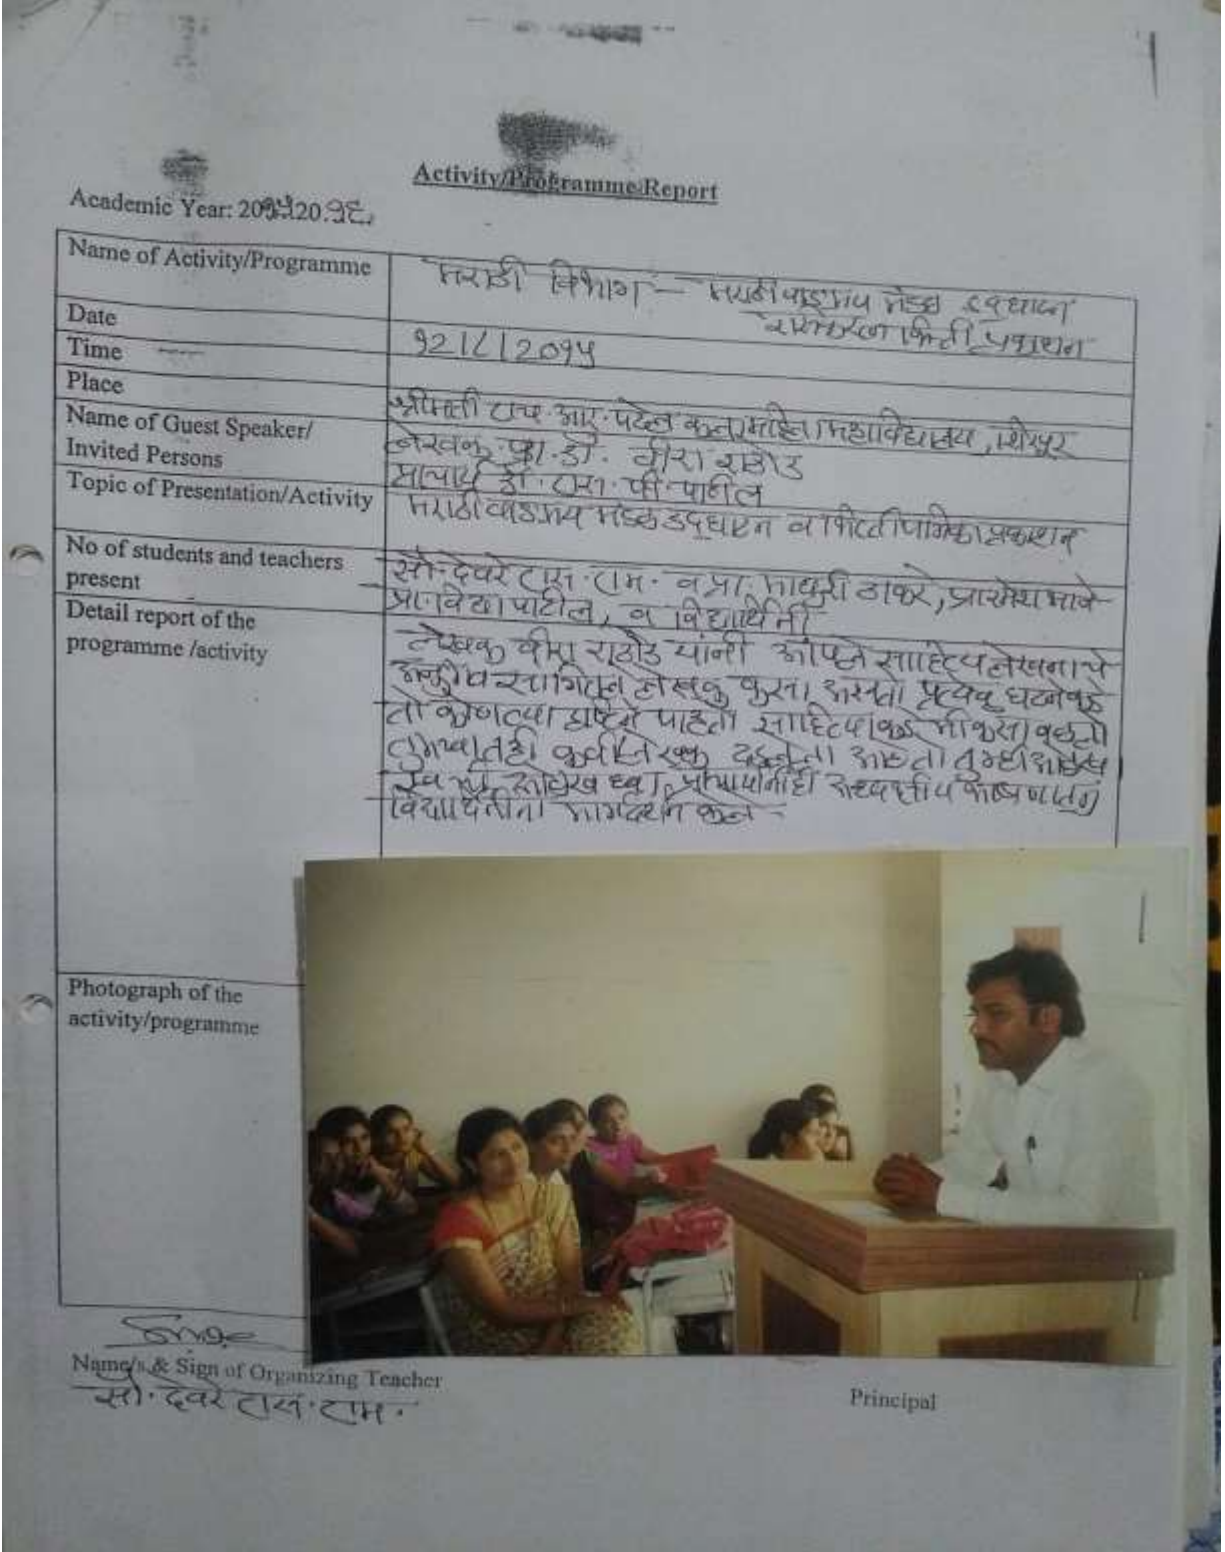 Activity/Programme Report
Academic Year: 20१५20.१६.
Name of Activity/Programme
मराठी विभाग :- मराठी वाङमय मंडळ उदघाटन
प्रकाशन
Date
१२/८/२०१५
Time
Place
श्रीमती एच.आर.पटेल कला महिला महाविद्यालय, शिरपूर
Name of Guest Speaker/
Invited Persons
लेखक प्रा.डॉ. वीरा राठोड
प्राचार्य डॉ. एस. पी. पाटील
Topic of Presentation/Activity
मराठी वाङमय मंडळ उद्घाटन व भित्तीपत्रिका प्रकाशन
No of students and teachers
present
सौ. देवरे एस. एम. व प्रा. माधुरी ठाकरे,
पाटील, व विद्यार्थिनी
Detail report of the
programme /activity
लेखक वीरा राठोड यांनी आपले साहित्य लेखनाचे
अनुभव सांगितले लेखक कसा असतो प्रत्येक घटनेकडे
तो कोणत्या दृष्टीने पाहतो साहित्याकडे मी कसा वळलो
तुमच्यातही कवी लेखक
विद्यार्थिनींना मार्गदर्शन केले -
Photograph of the
activity/programme
Name/s & Sign of Organizing Teacher
सौ. देवरे एस. एम.
Principal